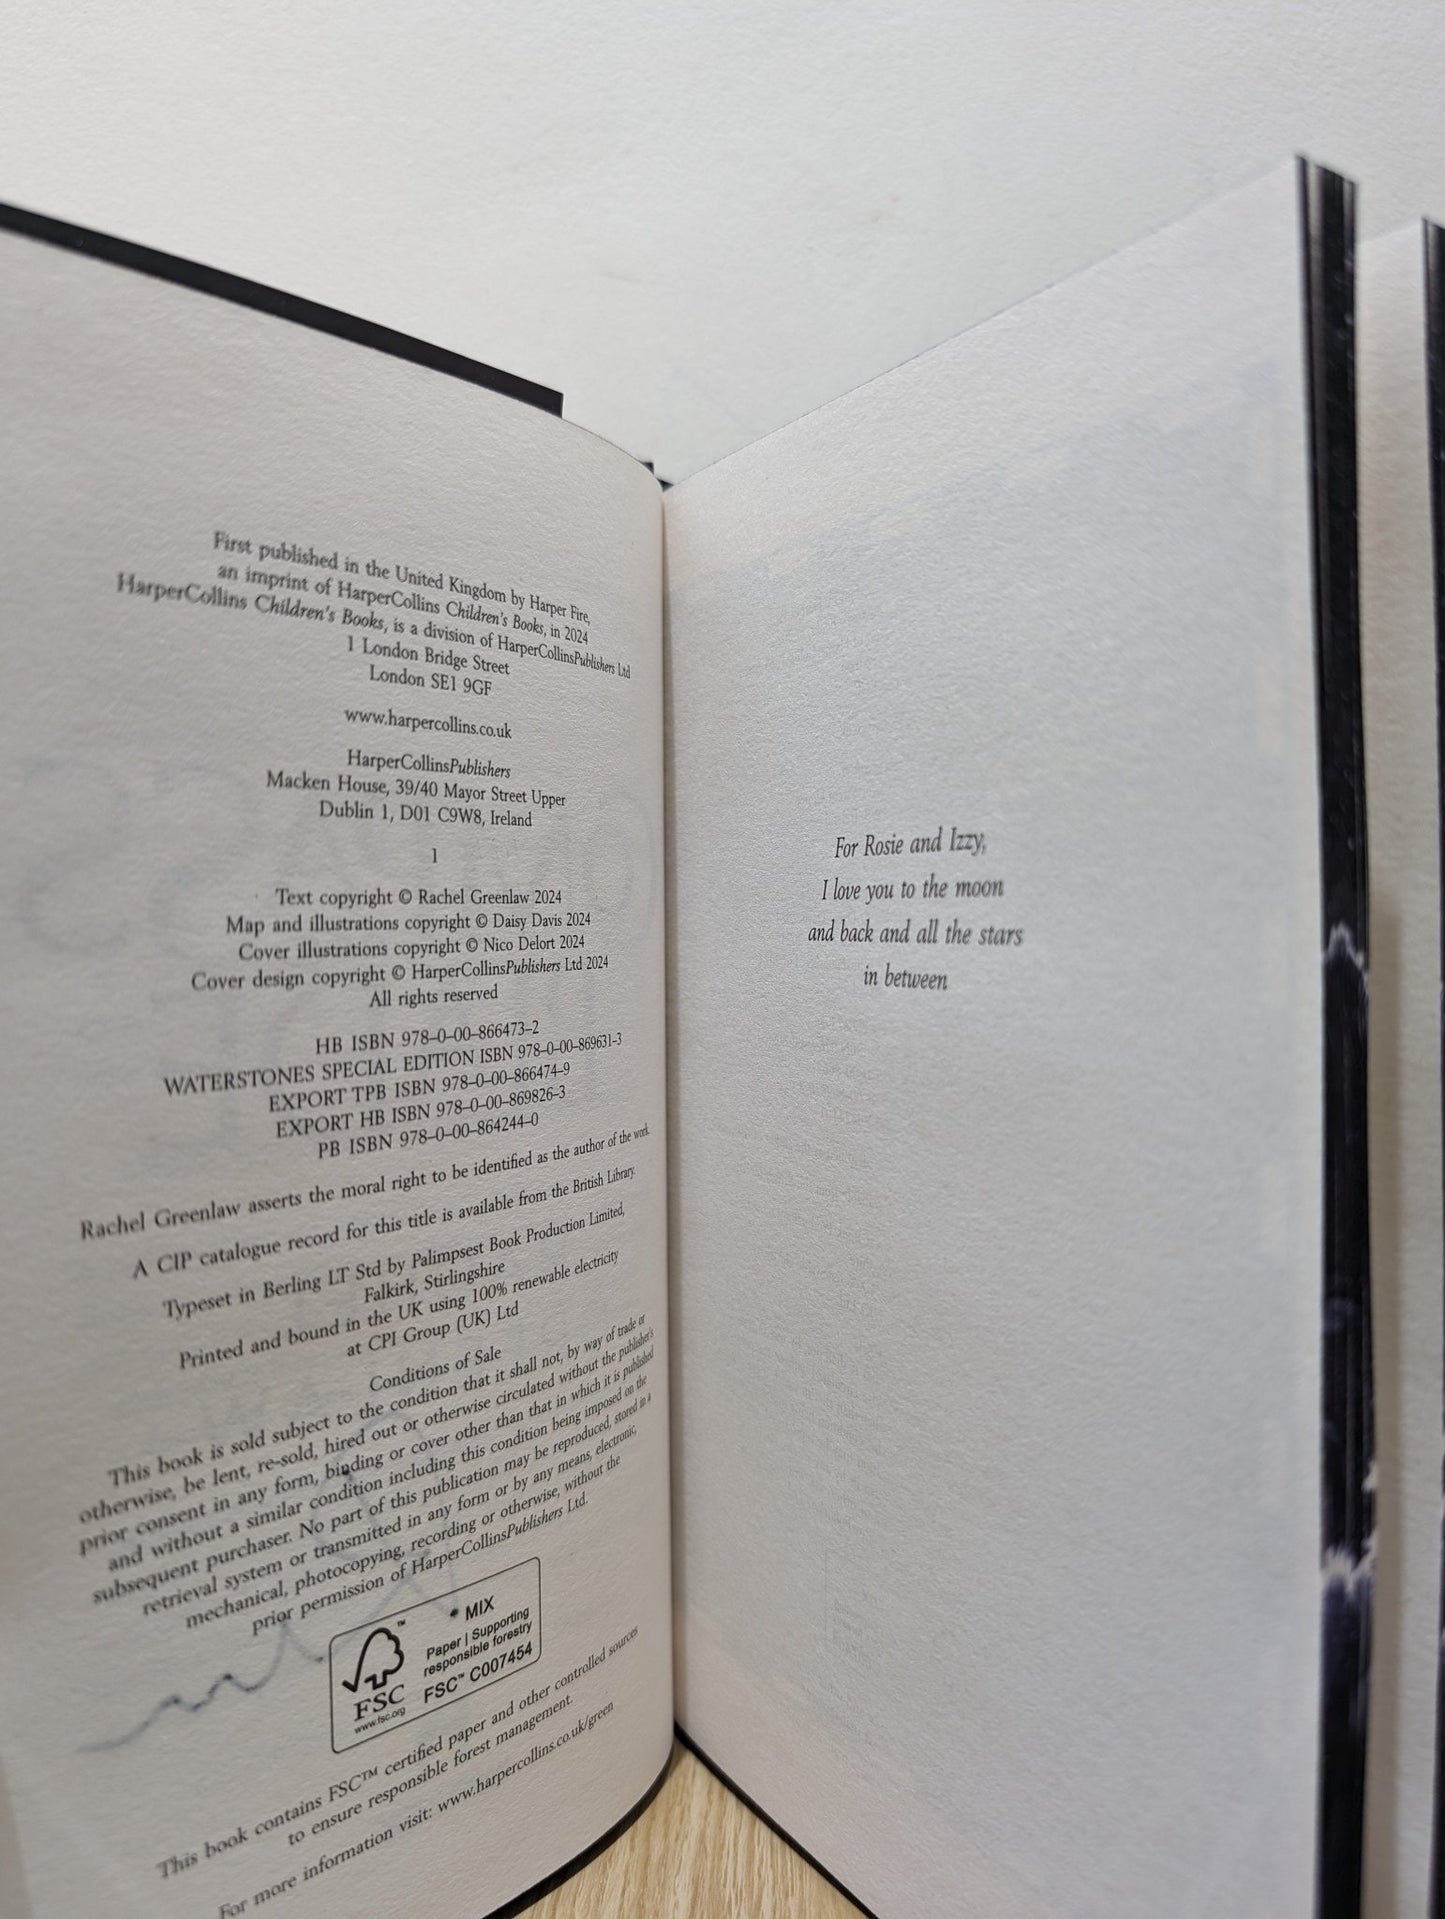 First published in the United Kingdom by Harper Fire,
an imprint of HarperCollins Children's Books, in 2024
HarperCollins Children's Books, is a division of HarperCollinsPublishers Ltd
1 London Bridge Street
London SE1 9GF
www.harpercollins.co.uk
HarperCollinsPublishers
Macken House, 39/40 Mayor Street Upper
Dublin 1, D01 C9W8, Ireland
1
Text copyright © Rachel Greenlaw 2024
Map and illustrations copyright © Daisy Davis 2024
Cover illustrations copyright © Nico Delort 2024
Cover design copyright © HarperCollinsPublishers Ltd 2024
All rights reserved
HB ISBN 978–0–00–866473–2
WATERSTONES SPECIAL EDITION ISBN 978–0–00–869631–3
EXPORT TPB ISBN 978–0–00–866474–9
EXPORT HB ISBN 978–0–00–869826–3
PB ISBN 978–0–00–864244–0
Rachel Greenlaw asserts the moral right to be identified as the author of the work.
A CIP catalogue record for this title is available from the British Library.
Typeset in Berling LT Std by Palimpsest Book Production Limited,
Falkirk, Stirlingshire
Printed and bound in the UK using 100% renewable electricity
at CPI Group (UK) Ltd
Conditions of Sale
This book is sold subject to the condition that it shall not, by way of trade or
otherwise, be lent, re-sold, hired out or otherwise circulated without the publisher's
prior consent in any form, binding or cover other than that in which it is published
and without a similar condition including this condition being imposed on the
subsequent purchaser. No part of this publication may be reproduced, stored in a
retrieval system or transmitted in any form or by any means, electronic,
mechanical, photocopying, recording or otherwise, without the
prior permission of HarperCollinsPublishers Ltd.
FSC™
www.fsc.org
MIX
Paper | Supporting
responsible forestry
FSC™ C007454
This book contains FSC™ certified paper and other controlled sources
to ensure responsible forest management.
For more information visit: www.harpercollins.co.uk/green
For Rosie and Izzy,
I love you to the moon
and back and all the stars
in between